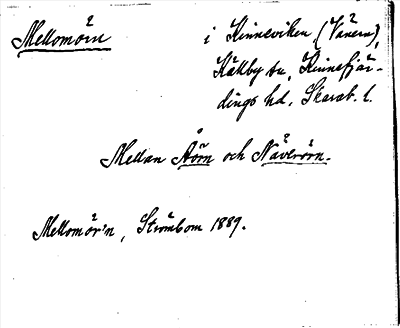 Mellomörn
i Kinneviken (Vänern),
Källby sn, Kinnefjär-
dings hd. Skarab. l.
Mellan Åörn och Näverörn.
Mellomör'n, Strömbom 1889.